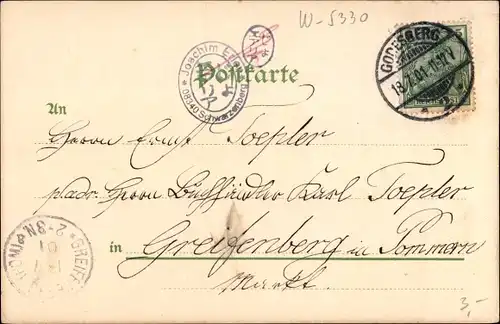 W-5330
Joachim
08340 Schwarzenberg
Postkarte
GODESBERG
18.7.01.11-12V
An
Herrn Ernst Toepler
p. adr. Herrn Buchhändler Karl Toepler
in Greifenberg in Pommern
Markt.
GREIF
2-3N
01
3,-